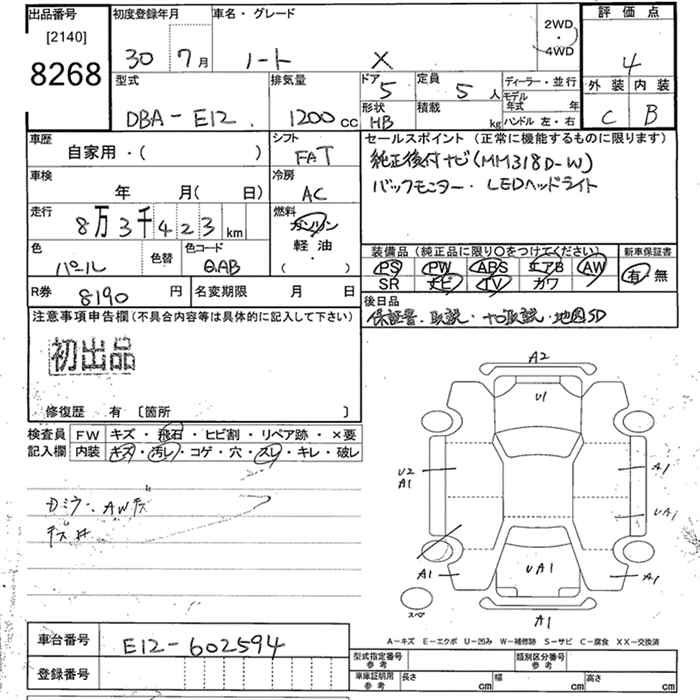 出品番号
[2140]
8268
初度登録年月
30 7月
車名・グレード
ノート X
2WD
・
4WD
評価点
4
外装 内装
C B
型式
DBA-E12
排気量
1200cc
ドア
5
定員
5人
形状
HB
積載
kg
ディーラー・並行
モデル年式 年
ハンドル 左・右
車歴
自家用・( )
シフト
FAT
セールスポイント (正常に機能するものに限ります)
純正後付ナビ(MM318D-W)
バックモニター・LEDヘッドライト
車検
年 月(日)
冷房
AC
走行
8万3千423km
燃料
ガソリン
軽油
( )
色
パール
色替
色コード
QAB
装備品(純正品に限り○をつけてください)
PS PW ABS エアB AW
SR ナビ TV カワ
新車保証書
有 無
R券
8190円
名変期限 月 日
後日品
保証書・取説・ナビ取説・地図SD
注意事項申告欄(不具合内容等は具体的に記入して下さい)
初出品
修復歴 有 〔箇所 〕
検査員
記入欄
FW キズ・飛石・ヒビ割・リペア跡・×要
内装 キズ・汚レ・コゲ・穴・スレ・キレ・破レ
A2
U1
U2
A1
A1
UA1
UA1
A1
A1
スペア
A1
A-キズ E-エクボ U-凹み W-補修跡 S-サビ C-腐食 XX-交換済
車台番号
E12-602594
登録番号
型式指定番号
参考
類別区分番号
参考
車庫証明用
参考
長さ cm
幅 cm
高さ cm